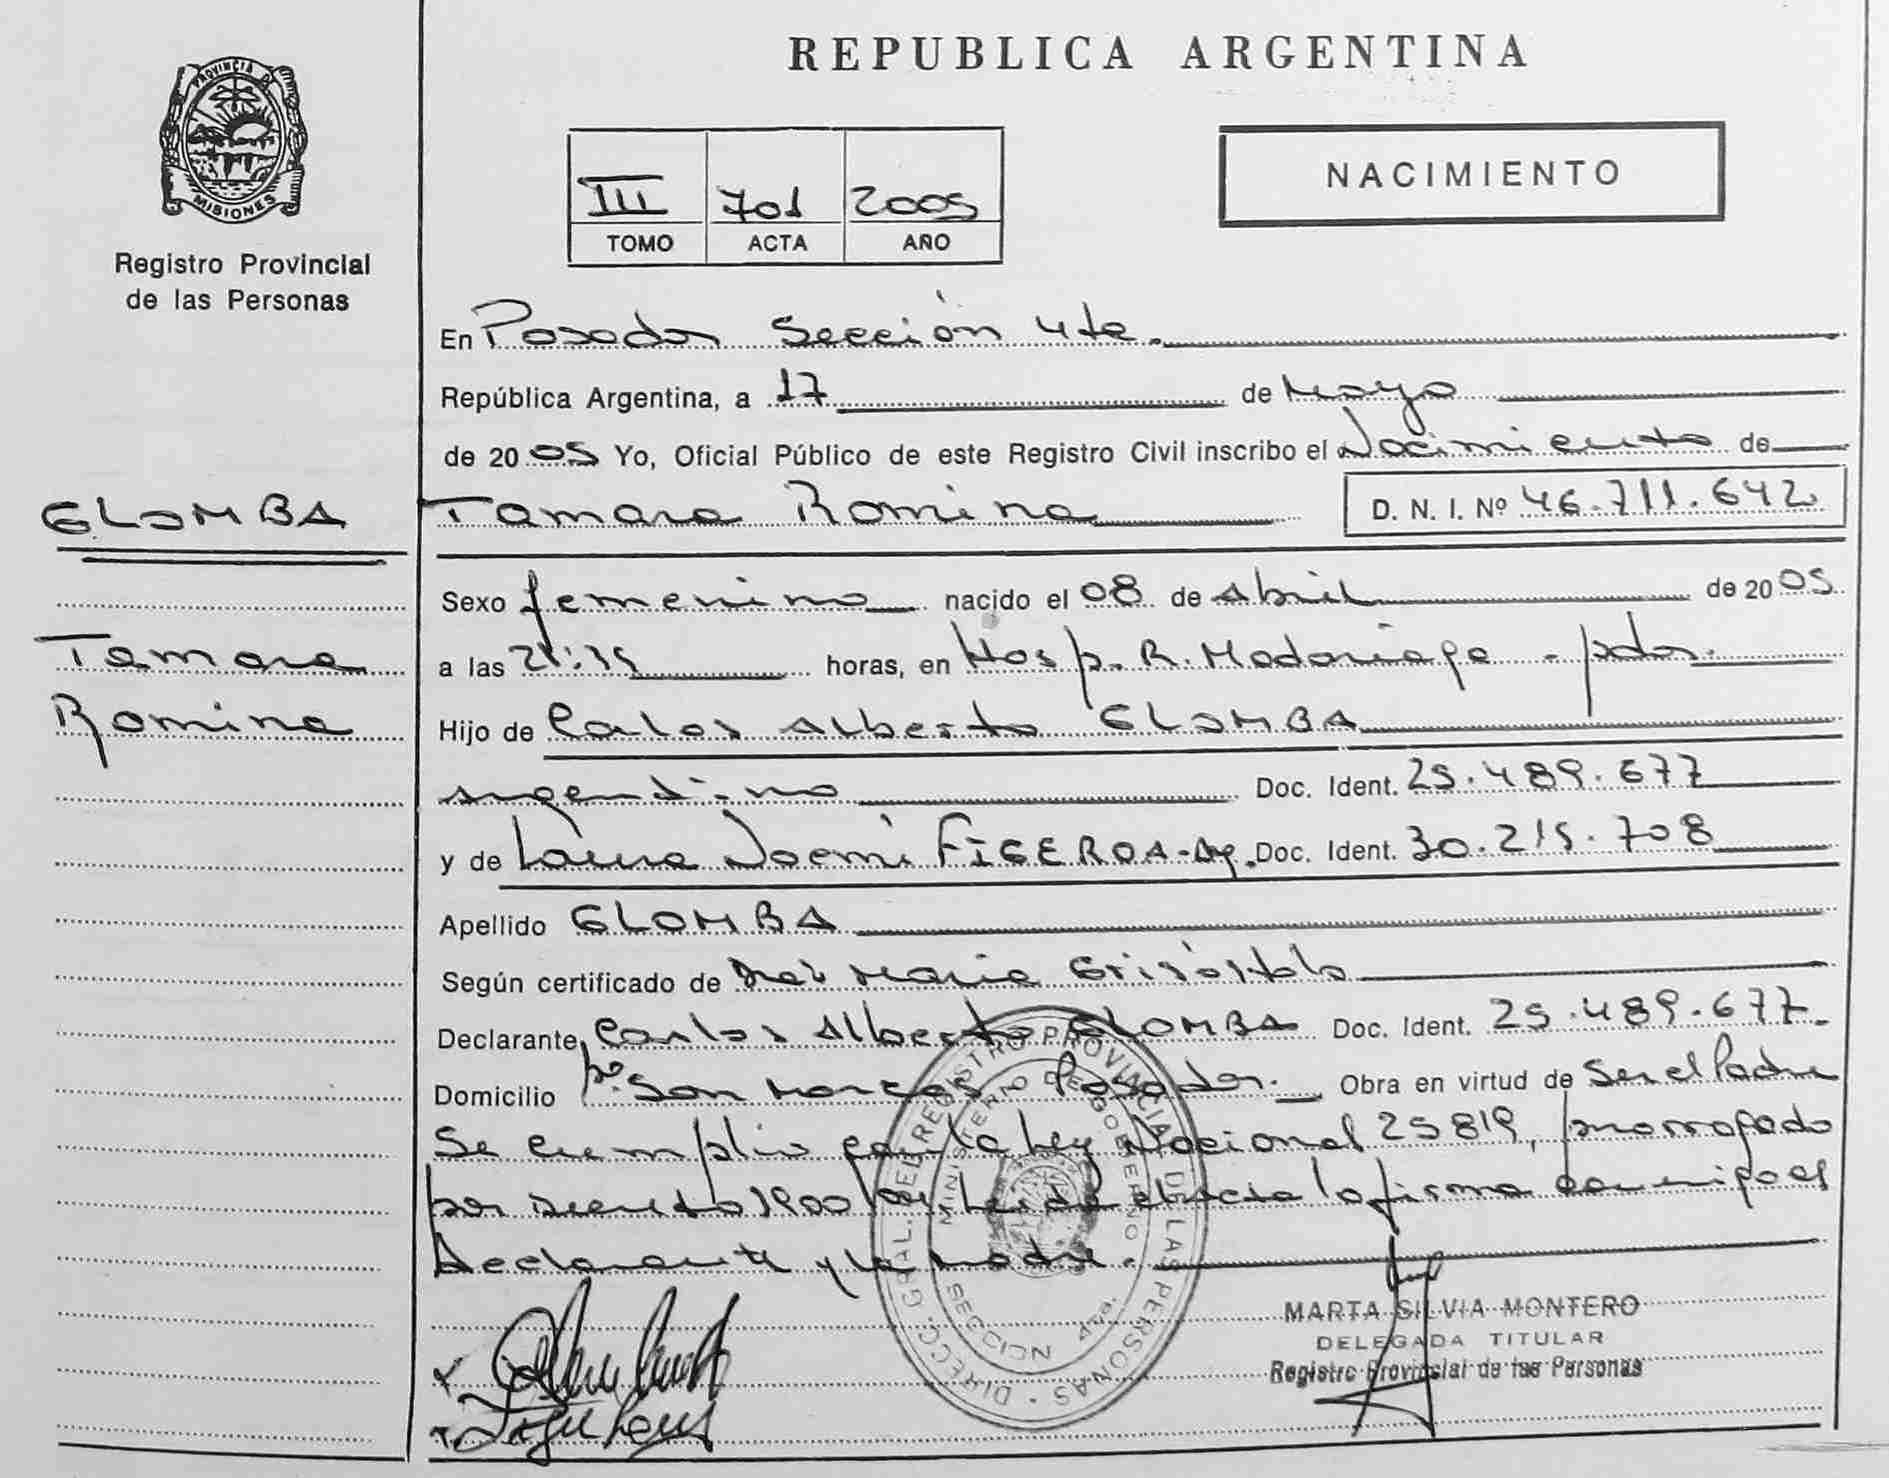 REPUBLICA ARGENTINA
PROVINCIA DE
MISIONES
Registro Provincial
de las Personas
III 701 2005
TOMO ACTA AÑO
NACIMIENTO
En Posadas Sección 4ta.
República Argentina, a 17 de Mayo
de 2005 Yo, Oficial Público de este Registro Civil inscribo el Nacimiento de
GLOMBA
Tamara Romina D. N. I. Nº 46.711.642
Sexo femenino nacido el 08 de Abril de 2005
Tamara
Romina
a las horas, en Hosp. R. Madariaga - pdas.
Hijo de Carlos Alberto GLOMBA
argentino Doc. Ident. 25.489.677
y de Laura Noemi FIGEROA-Arg. Doc. Ident. 30.215.708
Apellido GLOMBA
Según certificado de Maria
Declarante Carlos Alberto GLOMBA Doc. Ident. 25.489.677
Domicilio Bº San Marcos Posadas. Obra en virtud de Ser el Padre
Se cumplio con la Ley Nacional 25819, prorrogado
por decreto 1900 Leida el acta la firma conmigo el
Declarante y la madre.
DIRECC. GRAL. DEL REGISTRO PROVINCIAL DE LAS PERSONAS
MINISTERIO DE GOBIERNO
SECCION 4ta.
MARTA SILVIA MONTERO
DELEGADA TITULAR
Registro Provincial de las Personas